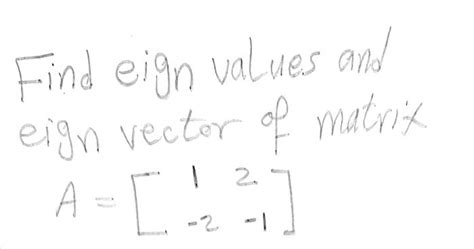 Find eign values and
eign vector of matrix
A = [ 1 2
-2 -1 ]